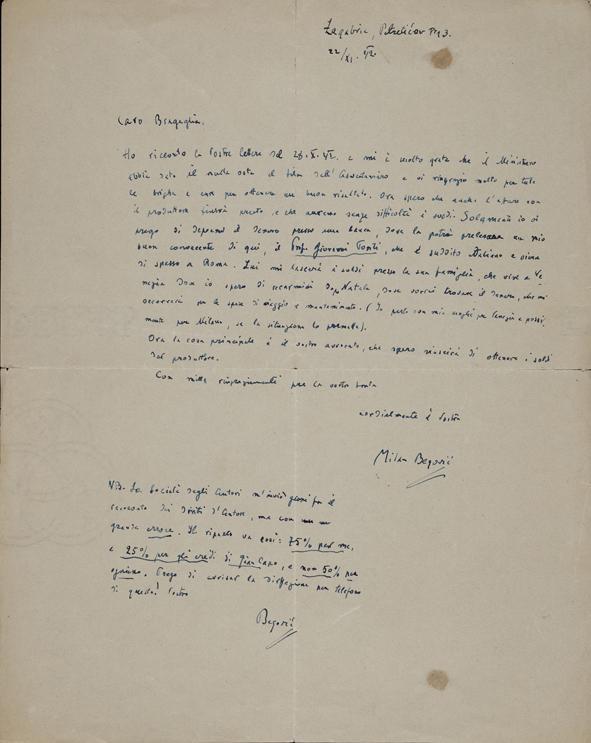 Zagabria, Petretićev trg 3.
22/XI. 42.
Caro Bragaglia,
Ho ricevuto la Vostra lettera del 28.X.42. e mi è molto grato che il Ministero
abbia dato il nulla osta il film dell' e vi ringrazio molto per tutte
le brighe e cure per ottenere un buon risultato. Ora spero che anche l'affare con
il produttore finirà presto e che avremo senza difficoltà i soldi. Solamente io vi
prego di deporre il denaro presso una banca, dove lo potrà prelevare un mio
buon conoscente di qui, il Prof. Giovanni, che è suddito Italiano e viene
di spesso a Roma. Lui mi lascerà i soldi presso la sua famiglia, che vive a Ve-
nezia dove io spero di recarmi dopo Natale, dove vorrei trovare il denaro, che mi
occorrerà per le spese di viaggio e mantenimento. (Io parto con mia moglie per Venezia e possi-
mente per Milano, se la situazione lo permette).
Ora la cosa principale è il vostro avvocato, che spero riuscirà di ottenere i soldi
dal produttore.
Con mille ringraziamenti per la vostra bontà
cordialmente il Vostro
Milan Begović
NB. La Società degli Autori m'inviò giorni fa il
resoconto dei Diritti d'Autore, ma con un
grande errore. Il riparto va così: 75% per me,
e 25% per gli eredi di Gian Capo, e non 50% per
ognuno. Prego di avvisar la Direzione per telefono
di questo! Vostro
Begović